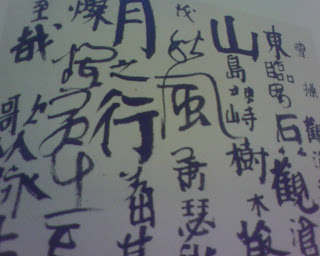 曹操觀滄
東臨碣石以觀滄
山島竦峙樹木叢
茂秋風蕭瑟
月之行若出其
燦爛
至哉歌以詠